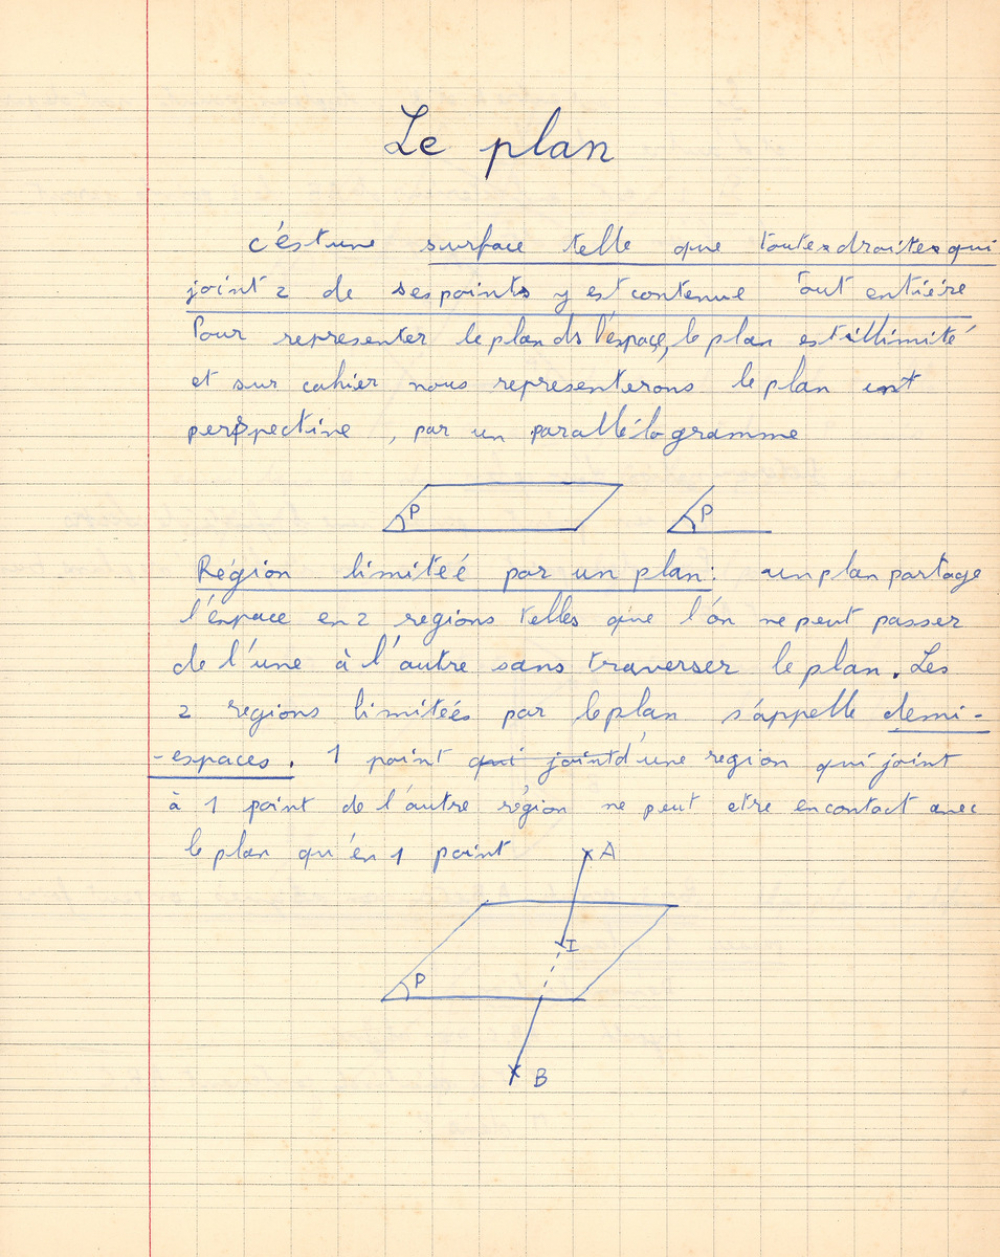 Le plan
c'est une surface telle que toutes droites qui
joint 2 de ses points y est contenue tout entière
Pour representer le plan ds l'espace, le plan est illimité
et sur cahier nous representerons le plan ent
perspective, par un parallélogramme
P P
Région limiteé par un plan: un plan partage
l'espace en 2 regions telles que l'on ne peut passer
de l'une à l'autre sans traverser le plan. Les
2 regions limiteés par le plan s'appelle demi-
-espaces. 1 point qui joint d'une region qui joint
à 1 point de l'autre région ne peut etre en contact avec
le plan qu'en 1 point
A
I
P
B